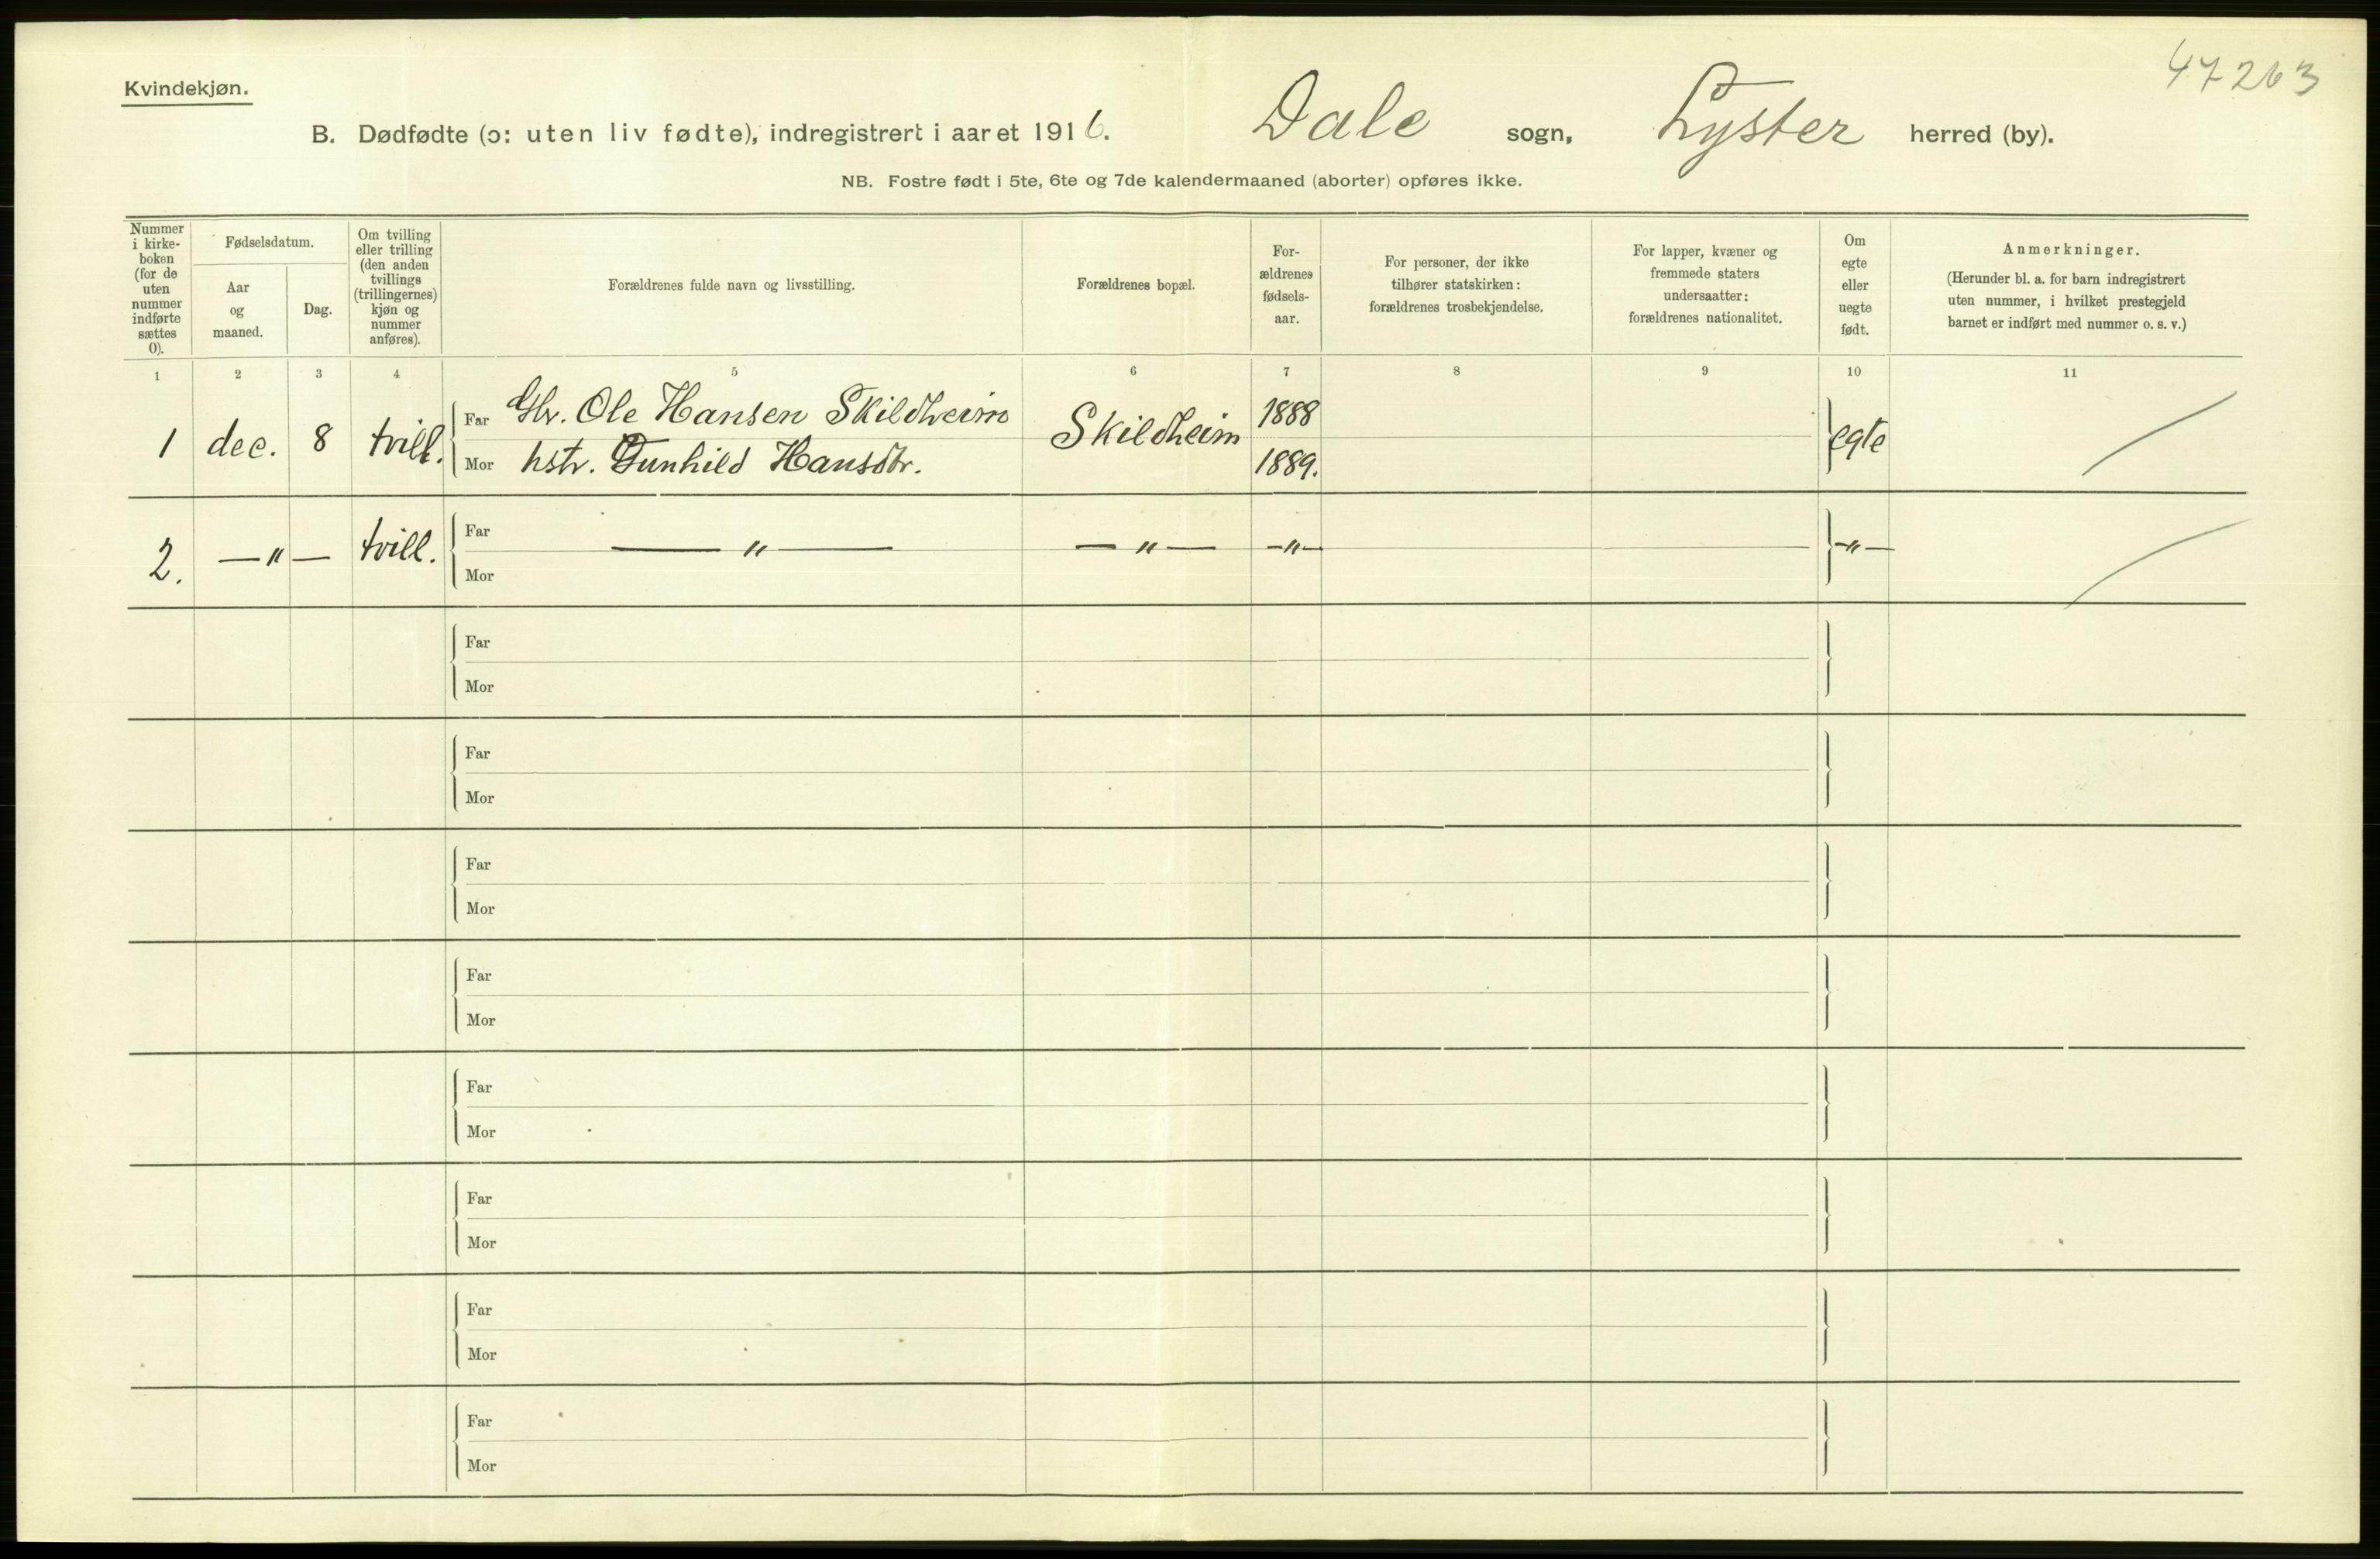 47263
Kvindekjøn.
B. Dødfødte (ɔ: uten liv fødte), indregistrert i aaret 1916. Dale sogn, Lyster herred (by).
NB. Fostre født i 5te, 6te og 7de kalendermaaned (aborter) opføres ikke.
Nummer i kirke-boken (for de uten nummer indførte sættes 0).
Fødselsdatum.
Aar og maaned.
Dag.
Om tvilling eller trilling (den anden tvillings (trillingernes) kjøn og nummer anføres).
Forældrenes fulde navn og livsstilling.
Forældrenes bopæl.
For-ældrenes fødsels-aar.
For personer, der ikke tilhører statskirken: forældrenes trosbekjendelse.
For lapper, kvæner og fremmede staters undersaatter: forældrenes nationalitet.
Om egte eller uegte født.
Anmerkninger.
(Herunder bl. a. for barn indregistrert uten nummer, i hvilket prestegjeld barnet er indført med nummer o. s. v.)
1 2 3 4 5 6 7 8 9 10 11
Far Gbr. Ole Hansen Skildheim 1888
1 dec. 8 tvill. Skildheim egte
Mor hstr. Gunhild Hansdtr. 1889.
Far
2. —"— tvill. —"— —"— —"— —"—
Mor
Far
Mor
Far
Mor
Far
Mor
Far
Mor
Far
Mor
Far
Mor
Far
Mor
Far
Mor